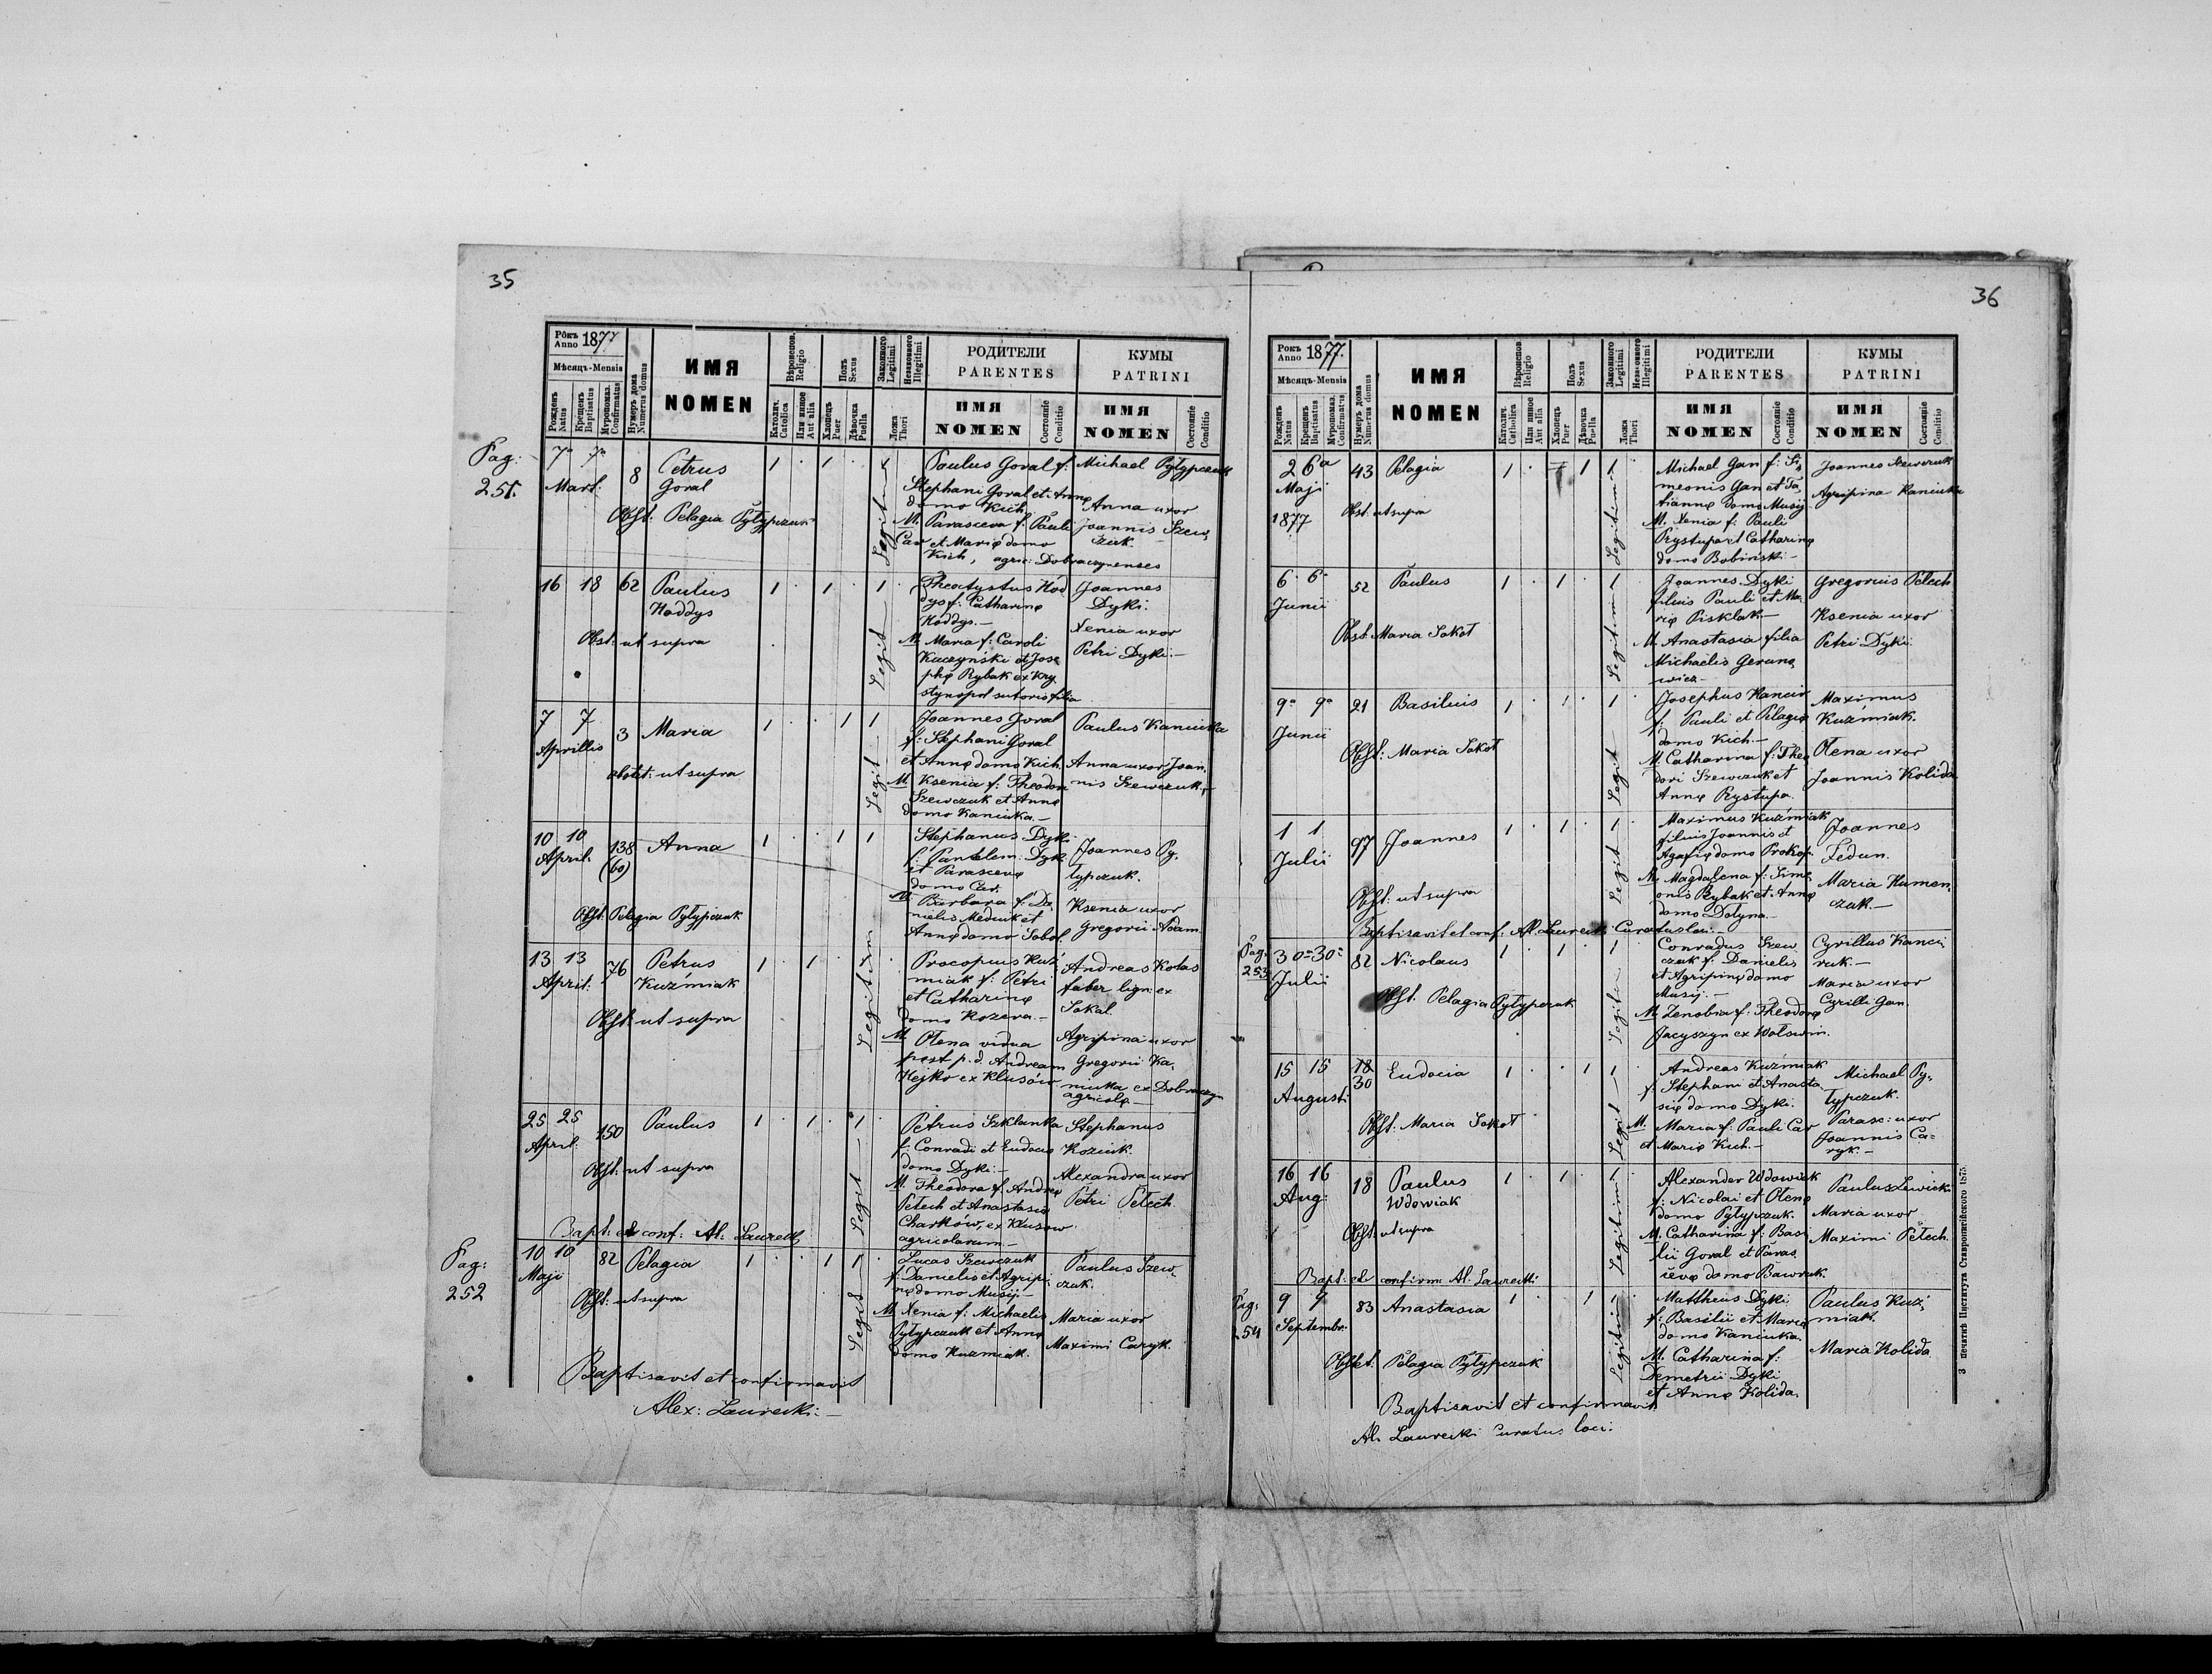 35
Рôкъ Anno 1877
Мѣсяць-Mensis
Рожденъ Natus
Крещенъ Baptisatus
Мѵропомаз. Confirmatus
Нумеръ дома Numerus domus
ИМЯ
NOMEN
Вѣроиспов. Religio
Католич. Catolica
Или иное Aut alia
Полъ Sexus
Хлопецъ Puer
Дѣвочка Puella
Законного Legitimi
Незаконного Illegitimi
Ложа Thori
РОДИТЕЛИ
PARENTES
ИМЯ
NOMEN
Состояніе Conditio
КУМЫ
PATRINI
ИМЯ
NOMEN
Состояніе Conditio
Pag:
251.
7a 7a
Mart:
8
Petrus
Goral
Obst: Pelagia Pyłypczuk
1 1 1
Legitimi
Paulus Goral f:
Stephani Goral et Annę
domo Kich
M. Parasceva f: Pauli
Car et Marię domo
Kich, agric: Dobraczynenses
Michael Pyłypczuk
Anna uxor
Joannis Szew,
czuk.
16 18 62
Paulus
Hoddys
Obst: ut supra
1 1 1
Legit
Theoctystus Hod
dys f: Catharinę
Hoddys.—
M. Maria f: Caroli
Kuczyński et Jose
phę Rybak ex Kry
stynopol sutoris filia
Joannes
Dyki.
Xenia uxor
Petri Dyki.—
7 7
Aprillis
3
Maria
obstet: ut supra
1 1 1
Legit
Joannes Goral
f: Stephani Goral
et Annę domo Kich.
M. Ksenia f: Theodori
Szewczuk et Annę
domo Kaniuka.—
Paulus Kaniuka
Anna uxor Joan,
nis Szewczuk.—
10 10
April:
138
(60)
Anna
Obst: Pelagia Pyłypczuk
1 1 1
Stephanus Dyki
f: Pantelem. Dyk
et Parascevę
domo Car.
M. Barbara f: Da
nielis Mediuk et
Annę domo Sobol.
Joannes Py,
łypczuk.
Ksenia uxor
Gregorii Adam.
13 13
April:
76
Petrus
Kuźmiak
Obst: ut supra
1 1
Legitimi
Procopius Kuź
miak f: Petri
et Catharinę
domo Kozera.—
M. Olena vidua
post p. d. Andream
Hejko ex Klusów
Andreas Kołas
faber lign: ex
Sokal.
Agripina uxor
Gregorii Ka,
niuka ex Dobraczyn
agricolę.—
25 25
April:
150
Paulus
Obst: ut supra
1 1 1
Legit
Petrus Szklanka
f: Conradi et Eudocię
domo Dyki.—
M. Theodora f: Andreę
Pełech et Anastasię
Charków, ex Klusow
agricolarum.—
Stephanus
Koziuk.
Alexandra uxor
Petri Pełech
Bapt: et conf: Al: Laurecki
Pag:
252
10 10
Maji
82
Pelagia
Obst: ut supra
1 1 1
Legit
Lucas Szewczuk
f: Danielis et Agripi,
nę domo Musij.—
M. Xenia f: Michaelis
Pyłypczuk et Annę
domo Kuzmiak.
Paulus Szew,
czuk.
Maria uxor
Maximi Caryk.
Baptisavit et confirmavit
Alex: Laurecki.—
36
Рокъ Anno 1877.
Мѣсяць-Mensis
Рожденъ Natus
Крещенъ Baptisatus
Мѵропомаз. Confirmatus
Нумеръ дома Numerus domus
ИМЯ
NOMEN
Вѣроиспов. Religio
Католич. Catholica
Или иное Aut alia
Полъ Sexus
Хлопецъ Puer
Дѣвочка Puella
Законного Legitimi
Незаконного Illegitimi
Ложа Thori
РОДИТЕЛИ
PARENTES
ИМЯ
NOMEN
Состояніе Conditio
КУМЫ
PATRINI
ИМЯ
NOMEN
Состояніе Conditio
26a
Maji
1877
43
Pelagia
Obst: ut supra
1 1 1
Legitimi
Michael Gan f: Si,
meonis Gan et Ta,
tiannę domo Musij
M. Xenia f: Pauli
Prystupa et Catharinę
domo Bobiński.—
Joannes Szewczuk
Agripina Kaniuka
6. 6.
Junii
52
Paulus
Obst: Maria Sokoł
1 1 1
Legitimi
Joannes Dyki
filius Pauli et Ma
rię Pisklak.—
M. Anastasia filia
Michaelis Geruno
wicz.—
Gregorius Pełech
Ksenia uxor
Petri Dyki
9a 9a
Junii
21
Basilius
Obst: Maria Sokoł
1 1 1
Legit
Josephus Kancir
f: Pauli et Pelagię
domo Kich.—
M. Catharina f: Theo
dori Szewczuk et
Annę Prystupa.
Maximus
Kuźmiak.
Olena uxor
Joannis Kolida
1 1
Julii
97
Joannes
Obst: ut supra
1 1 1
Legit
Maximus Kuźmiak
filius Joannis et
Agafię domo Prokop.
M. Magdalena f: Sime
onis Rybak et Annę
domo Dołyna.—
Joannes
Fedun.
Maria Humen,
czuk.—
Baptisavit et conf: Al. Laurecki Curatus loci.—
Pag:
253
30a 30a
Julii
82
Nicolaus
Obst. Pelagia Pyłypczuk
1 1 1
Legiti
Conradus Szew
czuk f: Danielis
et Agripinę domo
Musij.—
M. Zenobia f: Theodorę
Jacyszyn ex Wolswin.
Cyrillus Kanci
ruk.—
Maria uxor
Cyrilli Gan.
15 15
Augusti
18
30
Eudocia
Obst: Maria Sokoł
1 1 1
Legit
Andreas Kuźmiak
f: Stephani et Anasta,
się domo Dyki.
M. Maria f: Pauli Car
et Marię Kich.—
Michael Py,
łypczuk.
Parasc: uxor
Joannis Ca=
ryk.—
16 16
Aug:
18
Paulus
Wdowiak
Obst: ut supra
1 1 1
Legitimi
Alexander Wdowiak
f: Nicolai et Olenę
domo Pyłypczuk.
M. Catharina f: Basi
lii Goral et Paras.
cevę domo Bawruk.
Paulus Lewicki
Maria uxor
Maximi Pełech.
Bapt: et confirm Al. Laurecki
Pag:
254
9 9
Septembr:
83
Anastasia
Obstet: Pelagia Pyłypczuk
1 1
Legitimi
Mattheus Dyki
f: Basilii et Marię
domo Kaniuka.
M. Catharina f:
Demetrii Dyki
et Annę Kolida.
Paulus Kuź,
miak.
Maria Kolida
Baptisavit et confirmavit
Al. Laurecki Curatus loci.
З печатнѣ Института Ставропигійского 1875.